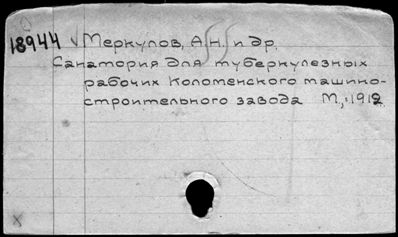 18944 Меркулов, А.Н. и др.
Санатория для туберкулезных
рабочих Коломенского машино-
строительного завода М,:1912